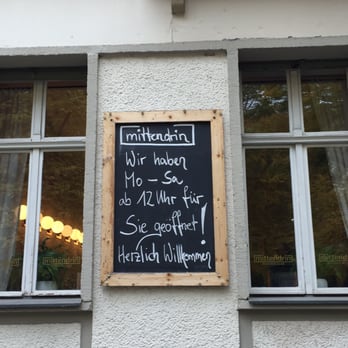 mittendrin
Wir haben
Mo - Sa
ab 12 Uhr für
Sie geöffnet!
Herzlich Willkommen
mittendrin
mittendrin